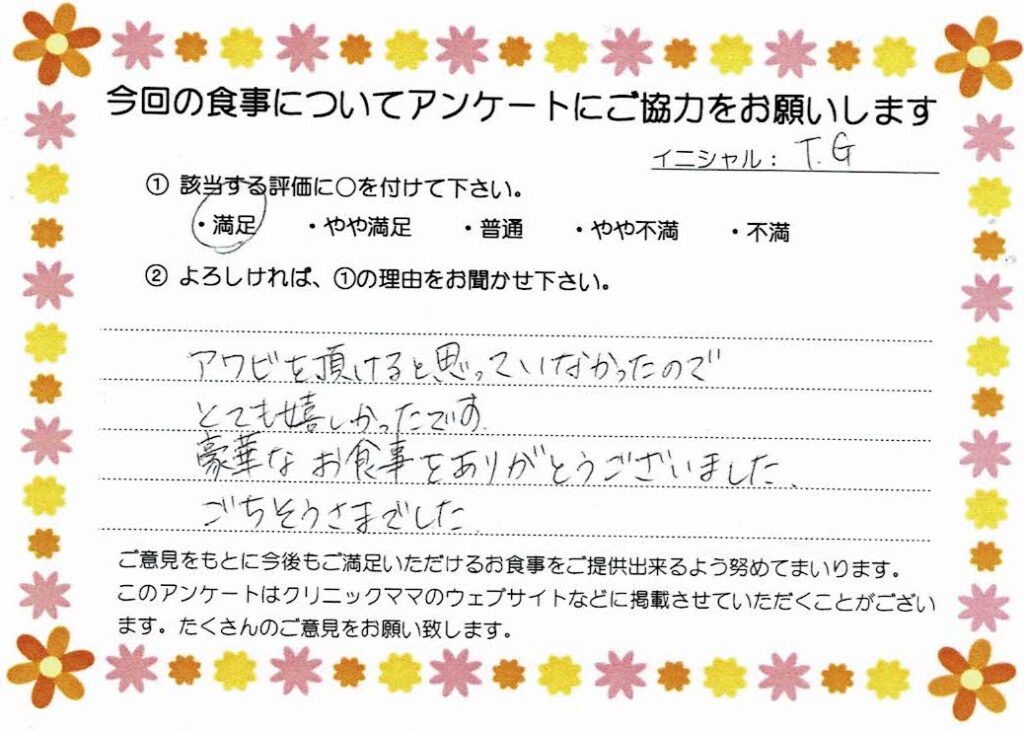 今回の食事についてアンケートにご協力をお願いします
イニシャル： T.G
① 該当する評価に〇を付けて下さい。
・満足 ・やや満足 ・普通 ・やや不満 ・不満
② よろしければ、①の理由をお聞かせ下さい。
アワビを頂けると思っていなかったので
とても嬉しかったです。
豪華なお食事をありがとうございました。
ごちそうさまでした。
ご意見をもとに今後もご満足いただけるお食事をご提供出来るよう努めてまいります。
このアンケートはクリニックママのウェブサイトなどに掲載させていただくことがござい
ます。たくさんのご意見をお願い致します。